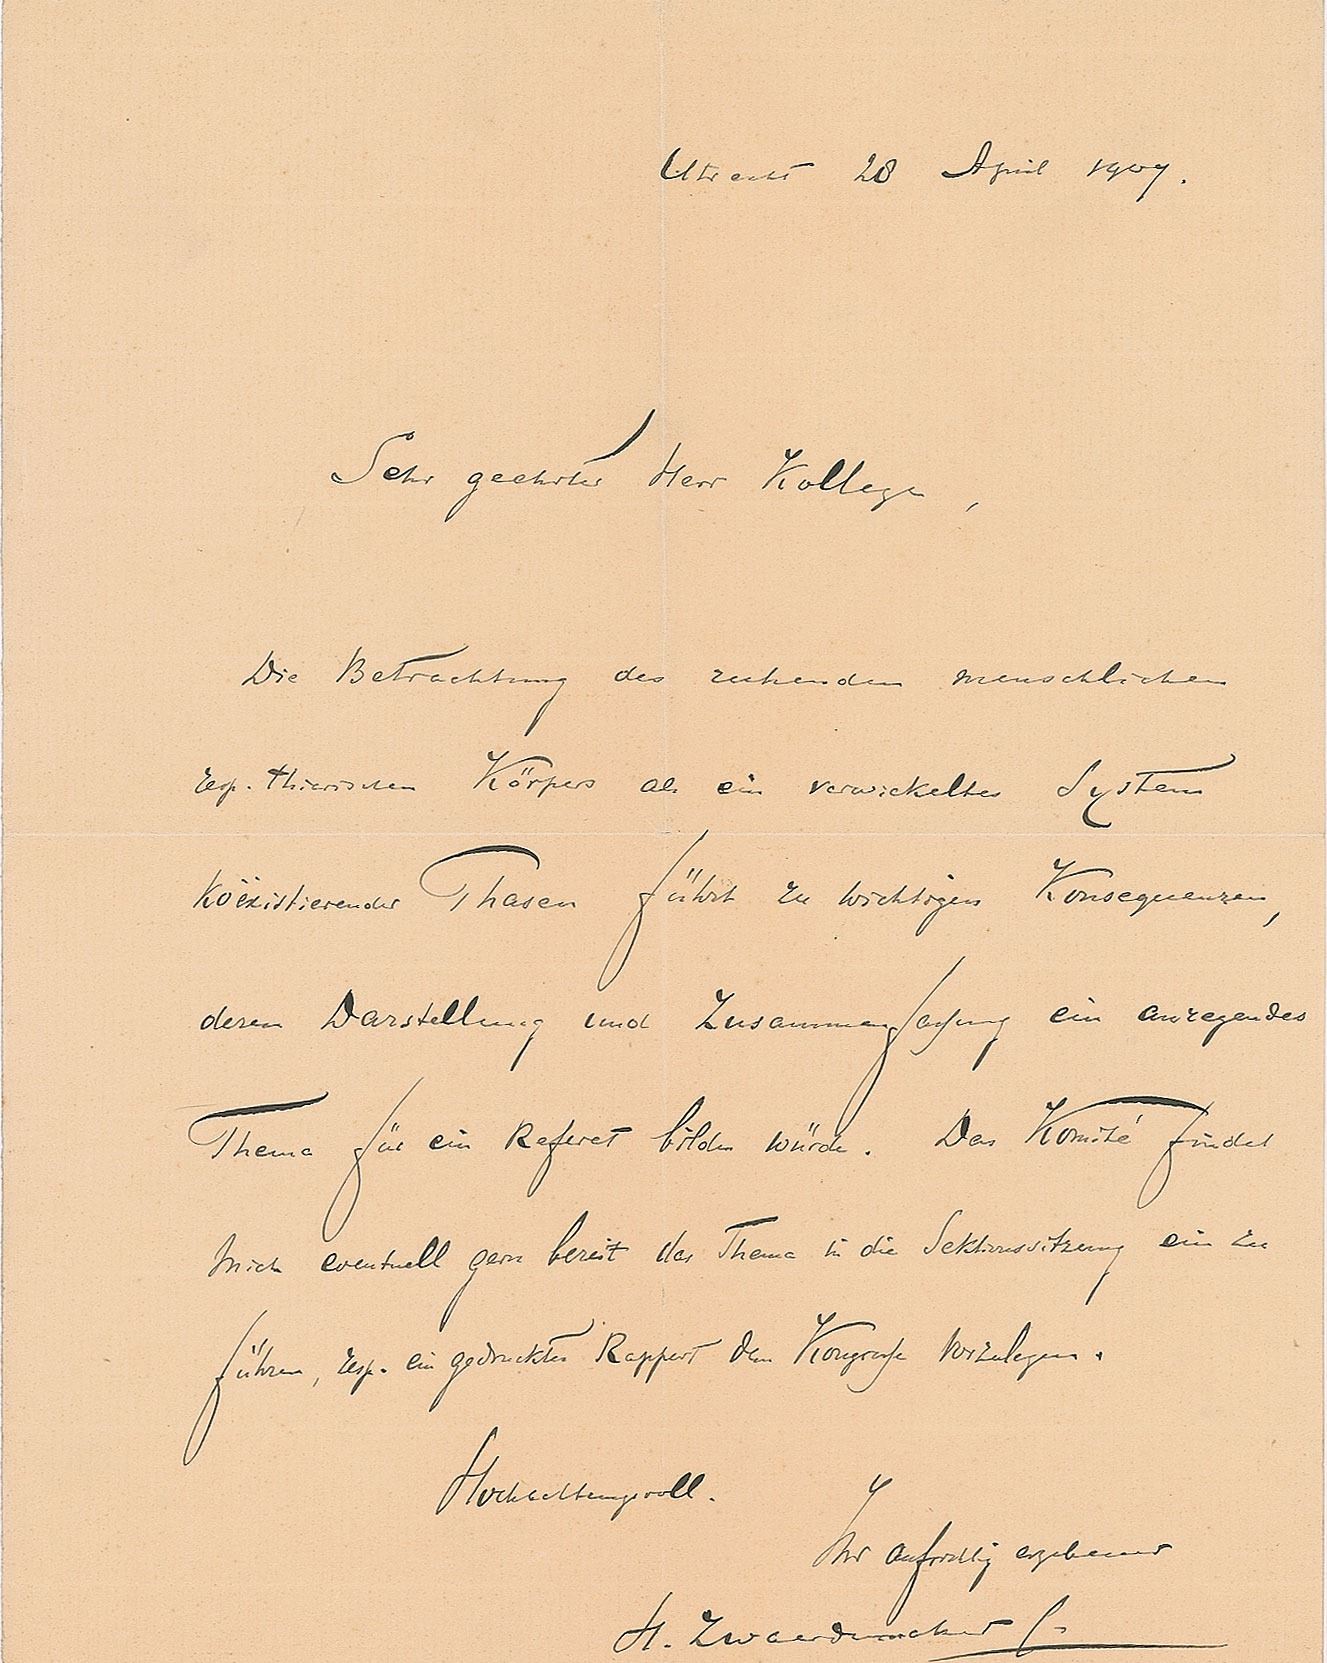 Utrecht 28 April 1907.
Sehr geehrter Herr Kollege,
Die Betrachtung des ruhenden menschlichen
resp. thierischen Körpers als ein verwickeltes System
koëxistierender Phasen führt zu wichtigen Konsequenzen,
deren Darstellung und Zusammenfassung ein anregendes
Thema für ein Referat bilden würde. Das Komité findet
mich eventuell gern bereit das Thema in die Sektionssitzung ein zu
führen, resp. ein gedrucktes Rapport dem Kongresse vorzulegen.
Hochachtungsvoll.
Ihr aufrichtig ergebener
H. Zwaardemaker